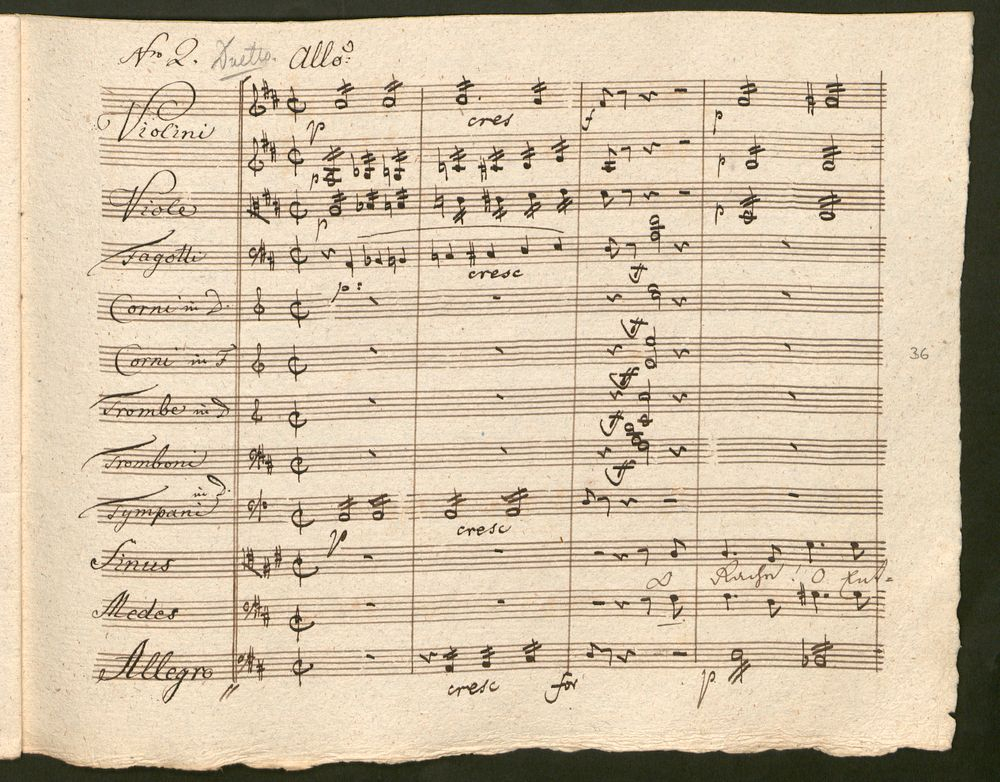 Nro 2. Duetto. Allo:
Violini
p cres f p
p p
Viole
p p
Fagotti
p: cresc
Corni in D.
Corni in F
36
Trombe in D
Tromboni
in D.
Tympani
p cresc
Sinus
O Rache! O
Medes
Allegro
cresc for p.